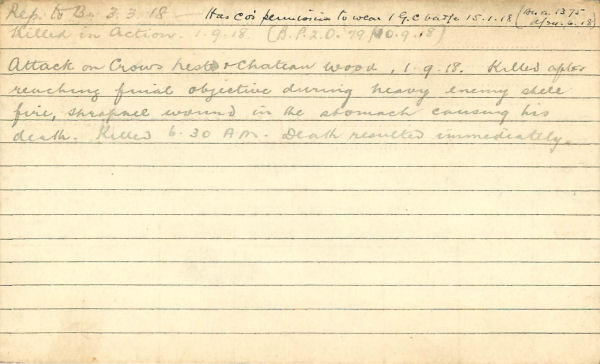 Rep. to Bn 3.3.18 — Has co's permission to wear 1 G.C badge 15.1.18 (
Killed in Action. 1.9.18. (B.P.20. 79/10.9.18)
Attack on Crows nest & Chateau Wood, 1.9.18. Killed after
reaching final objective during heavy enemy shell
fire, shrapnel wound in the stomach causing his
death. Killed 6.30 AM. Death resulted immediately.